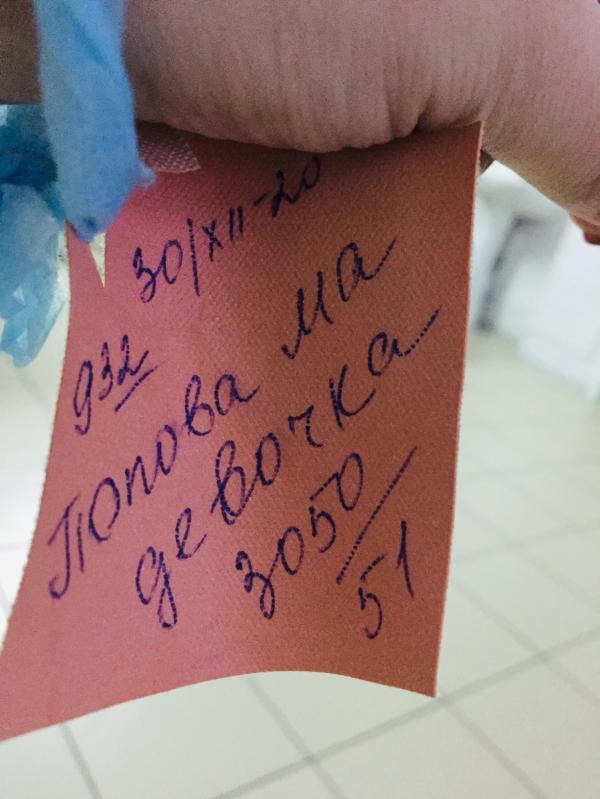 30/XII-20
9³²
Попова МА
девочка
3050/51